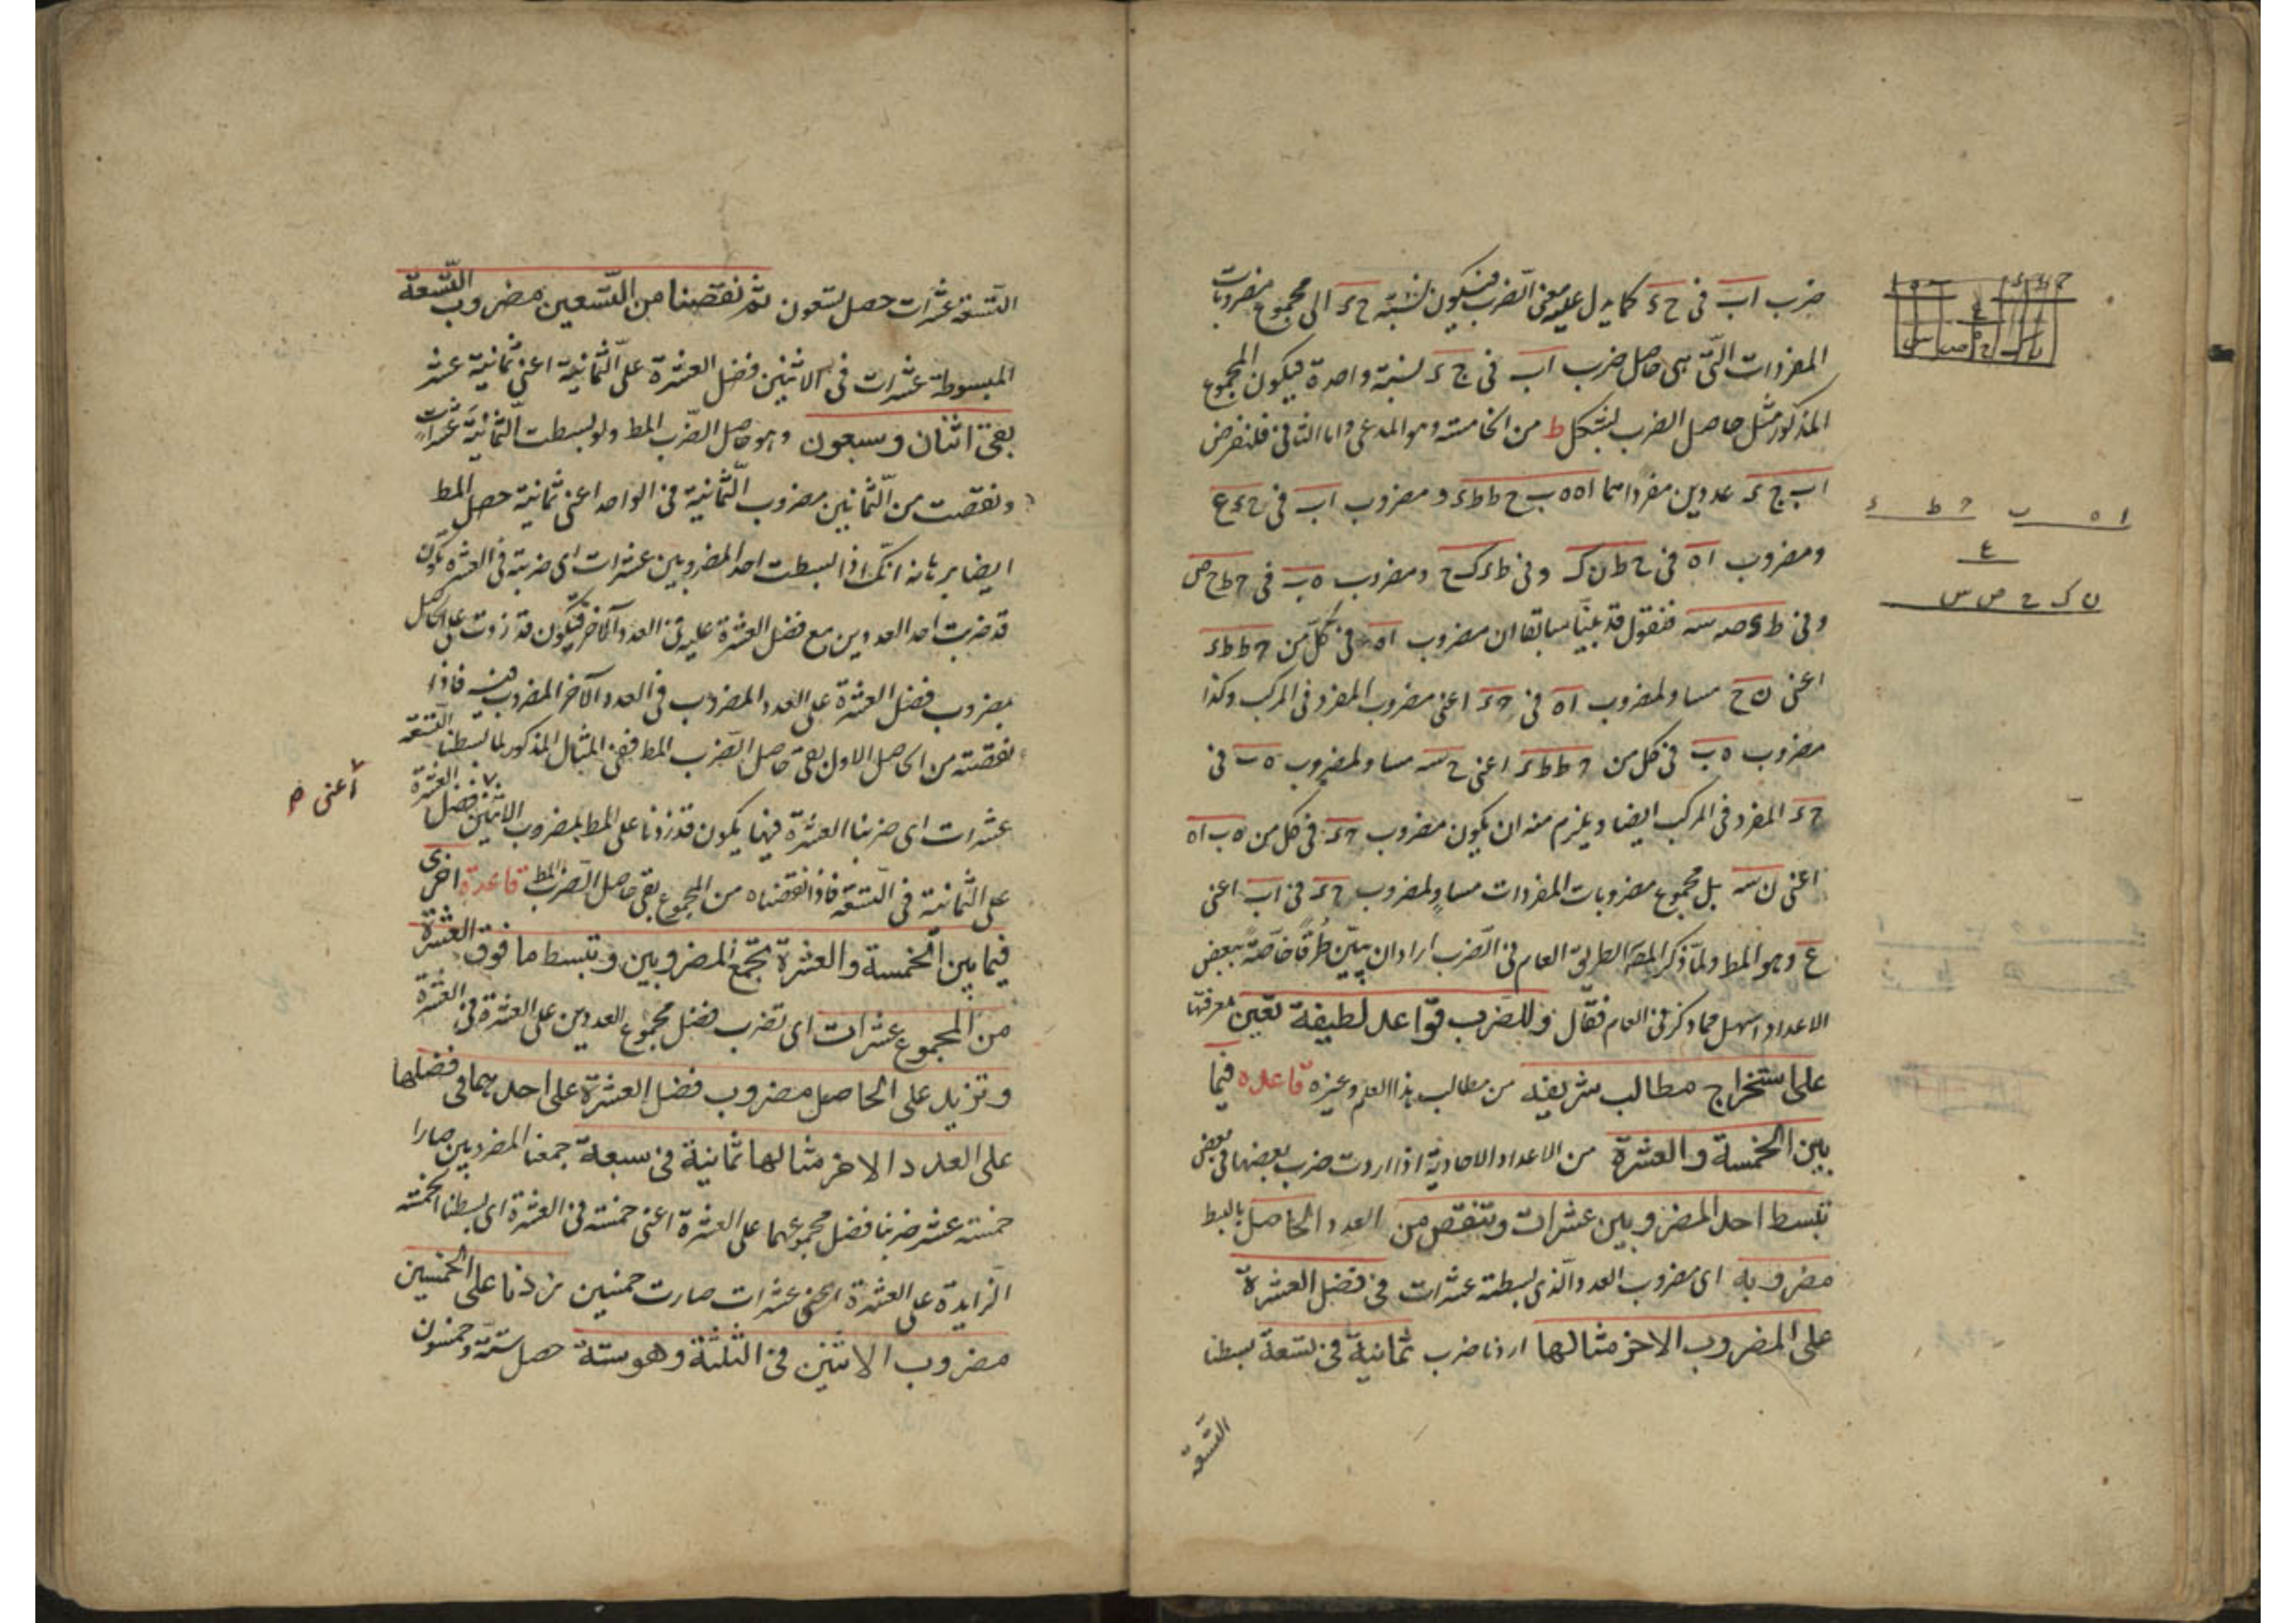 ضرب اب فى حء كما يدل عليه معنى الضرب فيكون نسبة حء الى مجموع مضروبات
المفردات التى هى حاصل ضرب اب فى حء نسبة واحدة فيكون المجموع
المذكور مثل حاصل الضرب بشكل ط من الخامسة وهو المدعى واما الثانى فلنفرض
اب حء عددين مفرداهما اه ه ب ح ط ط ء و مضروب اب فى حء ع
ومضروب اه فى ح ط ن ك وفى ط ء ك ح ومضروب ه ب فى ح ط ح ص
وفى ط ء ص س فنقول قد بينا سابقا ان مضروب اه فى كل من ح ط ط ء
اعنى ن ح مساو لمضروب اه فى حء اعنى مضروب المفرد فى المركب وكذا
مضروب ه ب فى كل من ح ط ط ء اعنى ح س مساو لمضروب ه ب فى
حء المفرد فى المركب ايضا ويلزم منه ان يكون مضروب حء فى كل من ه ب اه
اعنى ن س بل مجموع مضروبات المفردات مساو لمضروب حء فى اب اعنى
ع وهو المط ولما ذكر المصَ الطريق العام فى الضرب اراد ان يبين طرقا خاصة ببعض
الاعداد اسهل مما ذكر فى العام فقال وللضرب قواعد لطيفة تعين معرفتها
على استخراج مطالب شريفة من مطالب هذا العلم وغيره قاعده فيما
بين الخمسة والعشرة من الاعداد الاحادية اذا اردت ضرب بعضها فى بعض
تبسط احد المضروبين عشرات وتنقص من العدد الحاصل بالبسط
مضروبه اى مضروب العدد الذى بسطته عشرات فى فضل العشرة
على المضروب الاخر مثالها اردنا ضرب ثمانية فى تسعة بسطنا
التسعة
ا ه ب ح ط ء
ع
ن ك ح ص س
التسعة عشرات حصل تسعون ثم نقصنا من التسعين مضروب التسعة
المبسوطة عشرات فى الاثنين فضل العشرة على الثمانية اعنى ثمانية عشر
بقى اثنان وسبعون وهو حاصل الضرب المط ولو بسطت الثمانية عشرات
ونقصت من الثمانين مضروب الثمانية فى الواحد اعنى ثمانية حصل المط
ايضا برهانه انك اذا بسطت احد المضروبين عشرات اى ضربته فى العشرة تكون
قد ضربت احد العددين مع فضل العشرة عليه فى العدد الآخر فيكون قد زدت على الحاصل
مضروب فضل العشرة على العدد المضروب فى العدد الآخر المضروب فيه فاذا
نقصته من الحاصل الاول بقى حاصل الضرب المط ففى المثال المذكور لما بسطنا التسعة
عشرات اى ضربنا العشرة فيها يكون قد زدنا على المط بمضروب الاثنين فضل العشرة
على الثمانية فى التسعة فاذا نقصناه من المجموع بقى حاصل الضرب المط قاعدة اخرى
فيما بين الخمسة والعشرة تجمع المضروبين وتبسط ما فوق العشرة
من المجموع عشرات اى تضرب فضل مجموع العددين على العشرة فى العشرة
وتزيد على الحاصل مضروب فضل العشرة على احدهما فى فضلها
على العدد الاخر مثالها ثمانية فى سبعة جمعنا المضروبين صارا
خمسة عشر ضربنا فضل مجموعهما على العشرة اعنى خمسة فى العشرة اى بسطنا الخمسة
الزايدة على العشرة عشرات صارت خمسين زدنا على الخمسين
مضروب الاثنين فى الثلثة وهو ستة حصل ستة وخمسون
اعنى